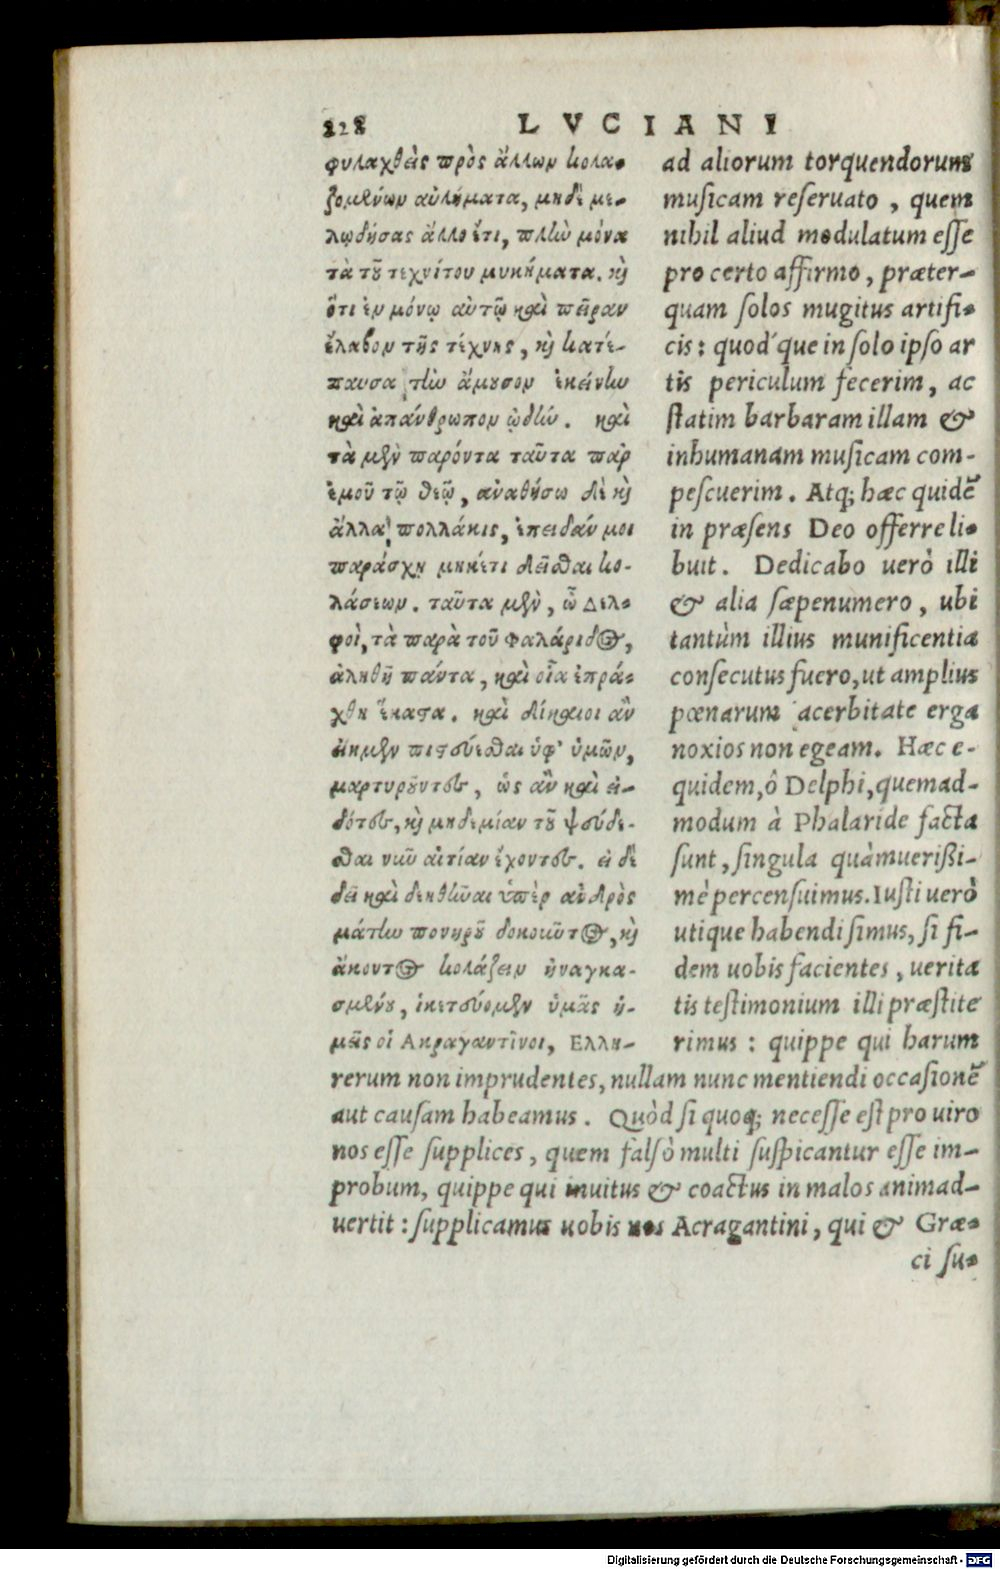 228 LVCIANI
φυλαχθεὶς πρὸς ἄλλων κολα-
ζομένων αὐλήματα, μηδὲ με-
λῳδήσας ἄλλο ἔτι, πλὴν μόνα
τὰ τοῦ τεχνίτου μυκήματα. καὶ
ὅτι ἐν μόνῳ αὐτῷ καὶ πεῖραν
ἔλαβον τῆς τέχνης, καὶ κατέ-
παυσα τὴν ἄμουσον ἐκείνην
καὶ ἀπάνθρωπον ᾠδήν. καὶ
τὰ μὲν παρόντα ταῦτα παρ
ἐμοῦ τῷ θεῷ, ἀναθήσω δὲ καὶ
ἄλλα πολλάκις, ἐπειδάν μοι
παράσχῃ μηκέτι δεῖσθαι κο-
λάσεων. ταῦτα μὲν, ὦ Δελ-
φοὶ, τὰ παρὰ τοῦ Φαλάριδος,
ἀληθῆ πάντα, καὶ οἷα ἐπρά-
χθη ἕκαστα. καὶ δίκαιοι ἂν
εἴημεν πιστεύεσθαι ὑφ' ὑμῶν,
μαρτυροῦντες, ὡς ἂν καὶ εἰ-
δότες, καὶ μηδεμίαν τοῦ ψεύδε-
σθαι νῦν αἰτίαν ἔχοντες. εἰ δὲ
δεῖ καὶ δεηθῆναι ὑπὲρ ἀνδρὸς
μάτην πονηροῦ δοκοῦντος, καὶ
ἄκοντος κολάζειν ἠναγκα-
σμένου, ἱκετεύομεν ὑμᾶς ἡ-
μεῖς οἱ Ακραγαντῖνοι, Ελλη-
ad aliorum torquendorum
musicam reseruato, quem
nihil aliud modulatum esse
pro certo affirmo, præter-
quam solos mugitus artifi-
cis: quod´que in solo ipso ar
tis periculum fecerim, ac
statim barbaram illam &
inhumanam musicam com-
pescuerim. Atq; hæc quidẽ
in præsens Deo offerre li-
buit. Dedicabo uerò illi
& alia sæpenumero, ubi
tantùm illius munificentia
consecutus fuero, ut amplius
pœnarum acerbitate erga
noxios non egeam. Hæc e-
quidem, ô Delphi, quemad-
modum à Phalaride facta
sunt, singula quàm uerißi-
mè percensuimus. Iusti uerò
utique habendi simus, si fi-
dem uobis facientes, uerita
tis testimonium illi præstite
rimus: quippe qui harum
rerum non imprudentes, nullam nunc mentiendi occasionẽ
aut causam habeamus. Quòd si quoq; necesse est pro uiro
nos esse supplices, quem falsò multi suspicantur esse im-
probum, quippe qui inuitus & coactus in malos animad-
uertit: supplicamus uobis nos Acragantini, qui & Græ-
ci su-
Digitalisierung gefördert durch die Deutsche Forschungsgemeinschaft - DFG